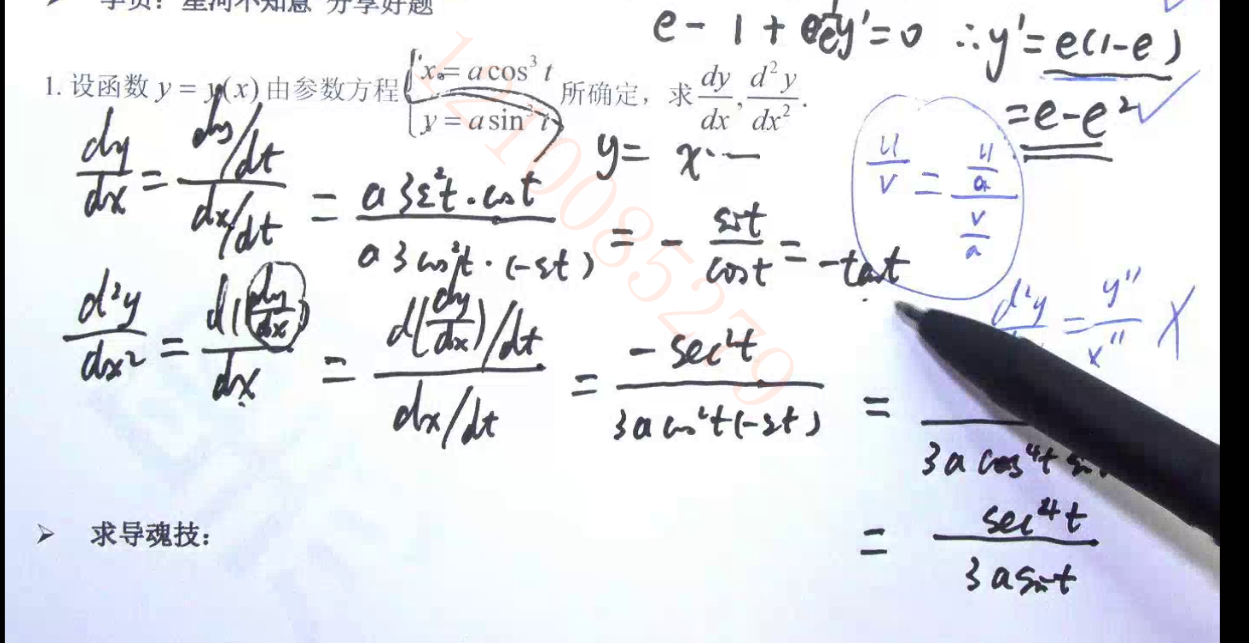 学员：星河不知意 分享好题
e - 1 + e y' = 0 ∴ y' = e(1-e)
= e - e²
1. 设函数 y = y(x) 由参数方程 { x = a cos³ t, y = a sin³ t 所确定，求 dy/dx, d²y/dx².
y = x...
dy/dx = (dy/dt)/(dx/dt) = (a 3 sin²t · cost)/(a 3 cos²t · (-sint)) = - sint/cost = -tant
u/v = (u/a)/(v/a)
d²y/dx² = d(dy/dx)/dx = (d(dy/dx)/dt)/(dx/dt) = (-sec²t)/(3a cos²t(-sint)) = /(3a cos⁴t
= y''/x'' X
= sec⁴t/(3a sint)
求导魂技：
1210085279